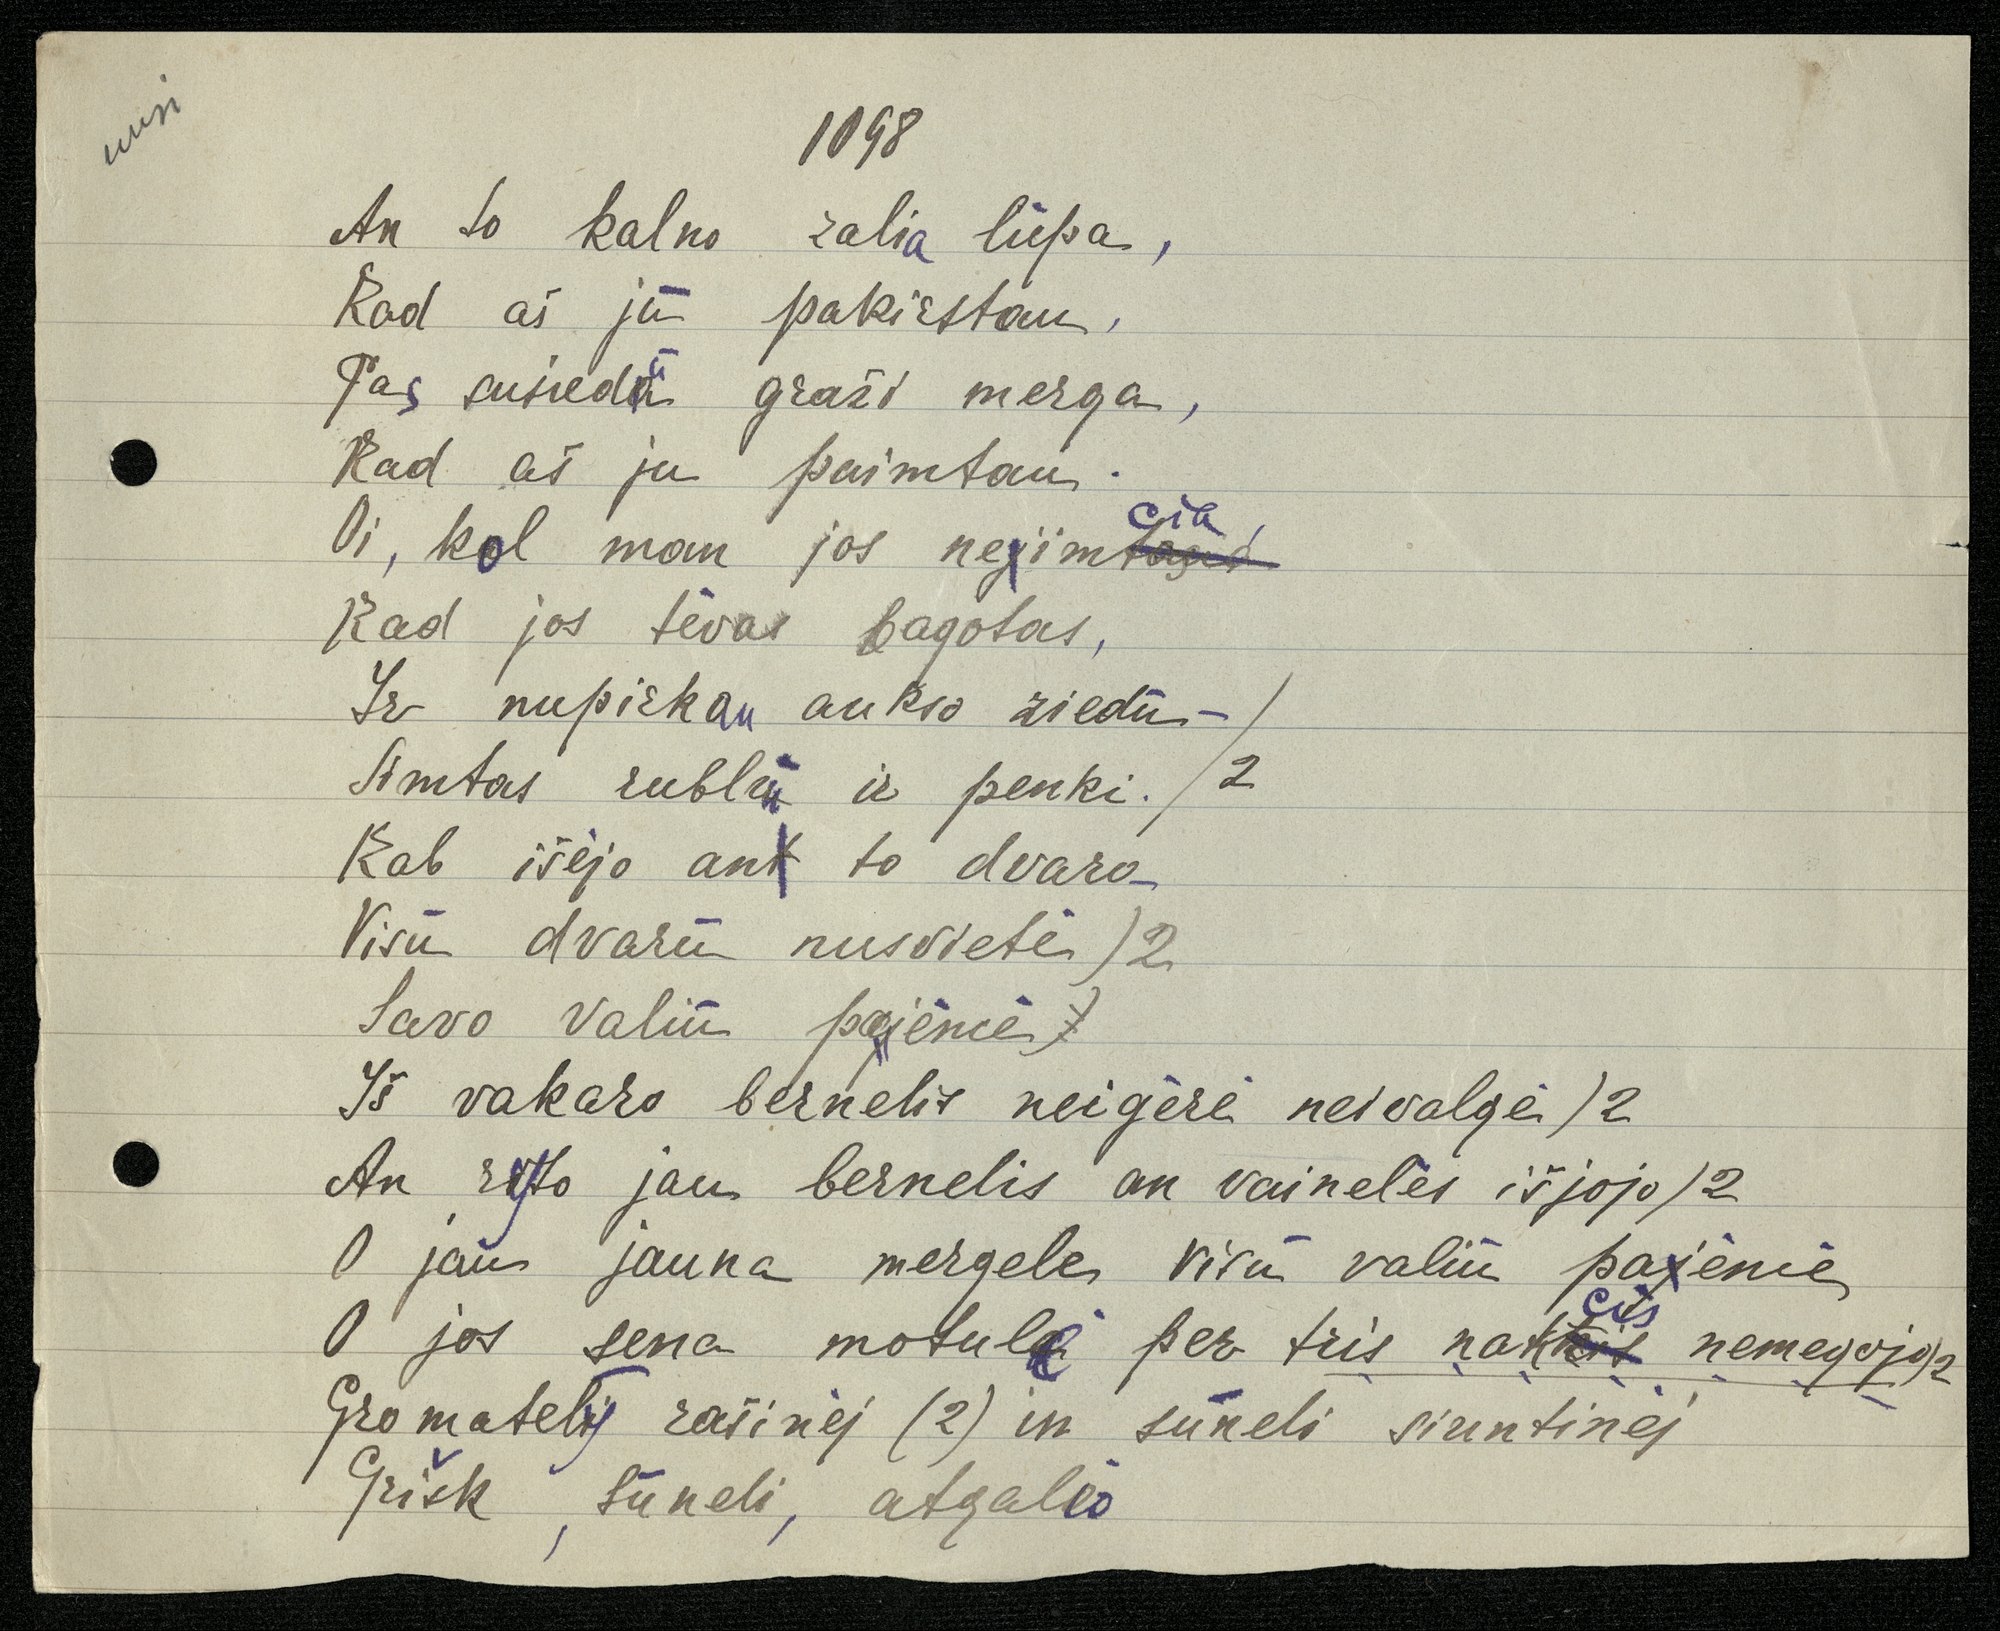 1098
An to kalno zalia liepa,
Kad aš jū pakirstau,
Pas susiedū graži merga,
Kad aš ju paimtau.
Oi, kol man jos neimcia,
Kad jos tėvas bagotas,
Ir nupirkau aukso ziedū –
Simtas rublių ir penki. /2
Kab išėjo an to dvaro
Visū dvarū nusvietė )2
Savo valiū pajėmė
Iš vakaro bernelis neigėrė neivalgė )2
An ryto jau bernelis an vainelės išjojo )2
O jau jauna mergele visū valiū paėmė
O jos sena motulė per tris nakcis nemegojo )2
Gromately rašinėj (2) in sūneli siuntinėj
Grišk, sūneli, atgalio